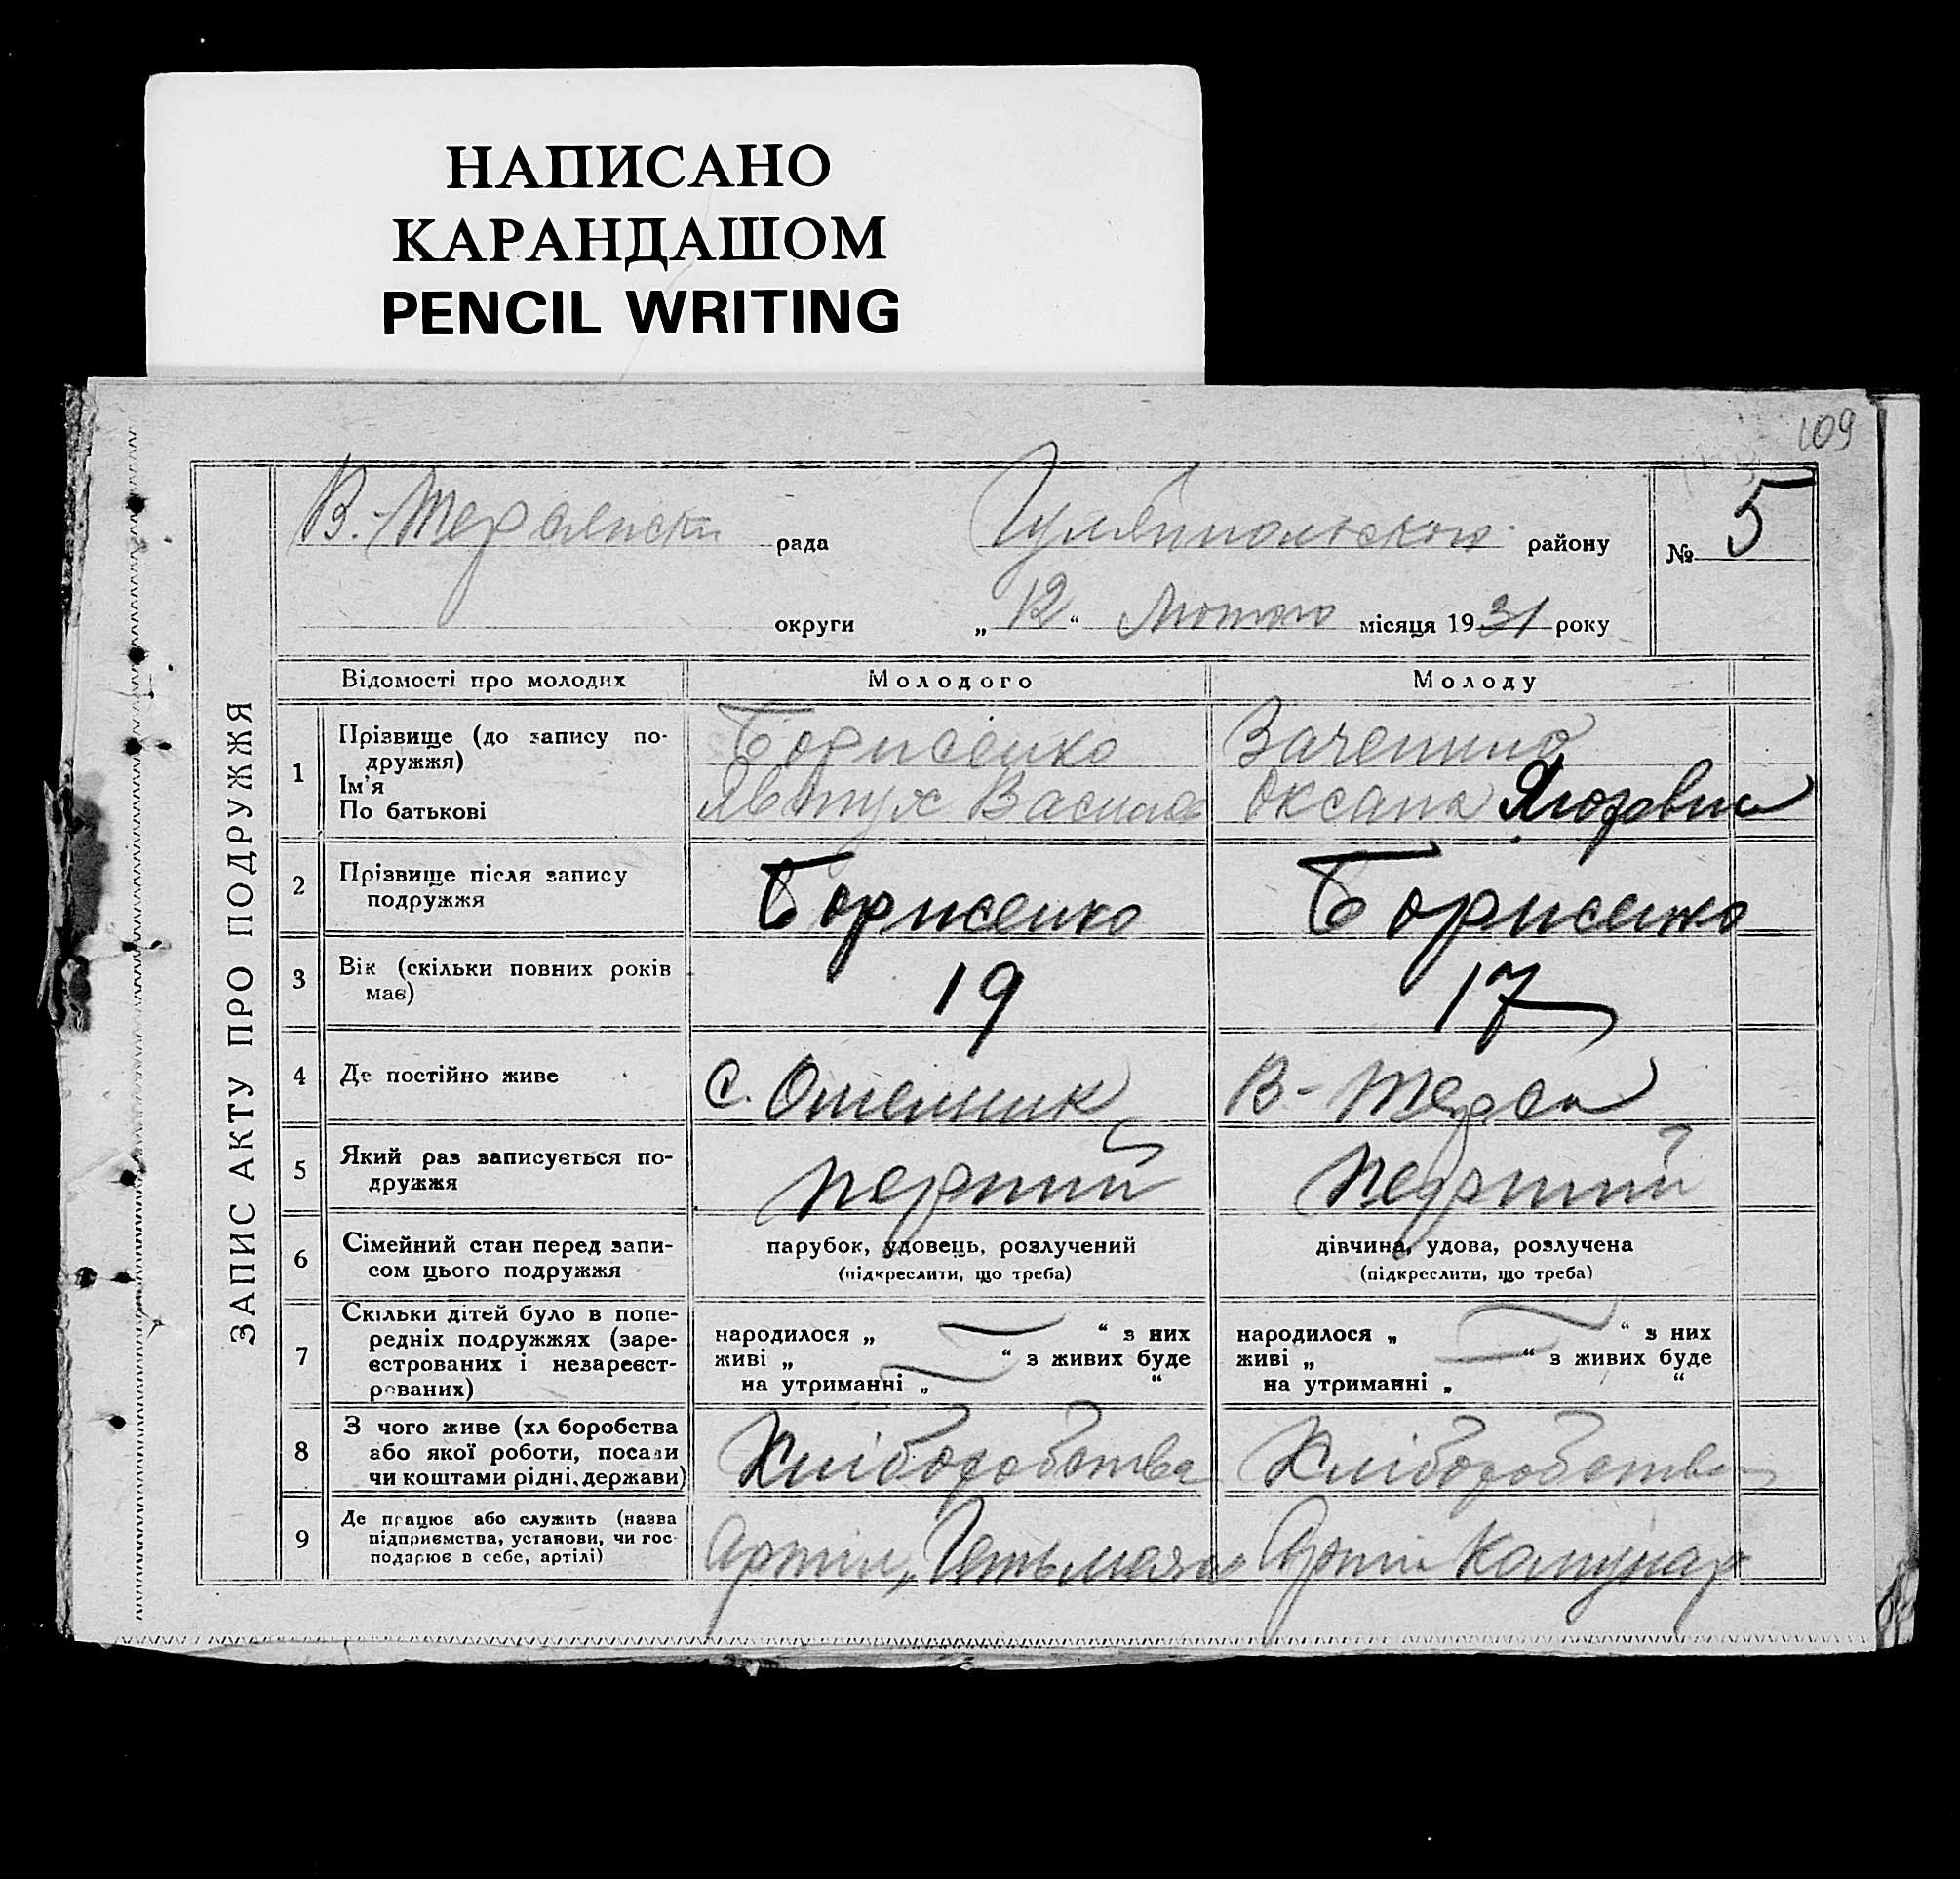 НАПИСАНО
КАРАНДАШОМ
PENCIL WRITING
109
ЗАПИС АКТУ ПРО ПОДРУЖЖЯ
В.-Терсянська рада Гуляйпольского району № 5
округи „12“ Лютого місяця 1931 року
Відомості про молодих Молодого Молоду
1 Прізвище (до запису по-
дружжя)
Ім'я
По батькові
Борисенко
Явтух Васил
Оксана
2 Прізвище після запису
подружжя
Борисенко Борисенко
3 Вік (скільки повних років
має)
19 17
4 Де постійно живе
С. В-Терса
5 Який раз записується по-
дружжя
перший перший
6 Сімейний стан перед запи-
сом цього подружжя
парубок, удовець, розлучений
(підкреслити, що треба)
дівчина, удова, розлучена
(підкреслити, що треба)
7 Скільки дітей було в попе-
редніх подружжях (заре-
єстрованих і незареєст-
рованих)
народилося „ “ з них
живі „ “ з живих буде
на утриманні „ “
народилося „ “ з них
живі „ “ з живих буде
на утриманні „ “
8 З чого живе (хліборобства
або якої роботи, посади
чи коштами рідні, держави)
Хліборобства Хліборобства
9 Де працює або служить (назва
підприємства, установи, чи гос-
подарює в себе, артілі)
Артіл Артіл